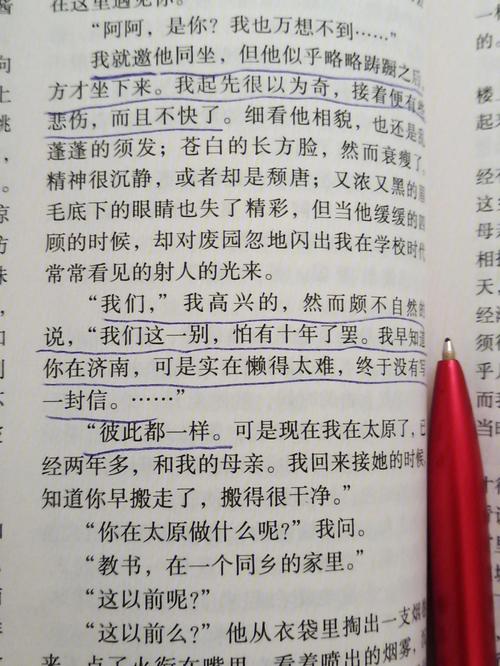 在这里遇见你。
“阿阿，是你？我也万想不到……”
我就邀他同坐，但他似乎略略踌蹰之后，
方才坐下来。我起先很以为奇，接着便有些
悲伤，而且不快了。细看他相貌，也还是
蓬蓬的须发；苍白的长方脸，然而衰瘦了。
精神很沉静，或者却是颓唐；又浓又黑的眉
毛底下的眼睛也失了精彩，但当他缓缓的四
顾的时候，却对废园忽地闪出我在学校时代
常常看见的射人的光来。
“我们，”我高兴的，然而颇不自然的
说，“我们这一别，怕有十年了罢。我早知道
你在济南，可是实在懒得太难，终于没有写
一封信。……”
“彼此都一样。可是现在我在太原了，已
经两年多，和我的母亲。我回来接她的时候，
知道你早搬走了，搬得很干净。”
“你在太原做什么呢？”我问。
“教书，在一个同乡的家里。”
“这以前呢？”
“这以前么？”他从衣袋里掏出一支烟
来，点了火衔在嘴里，看着喷出的烟雾，